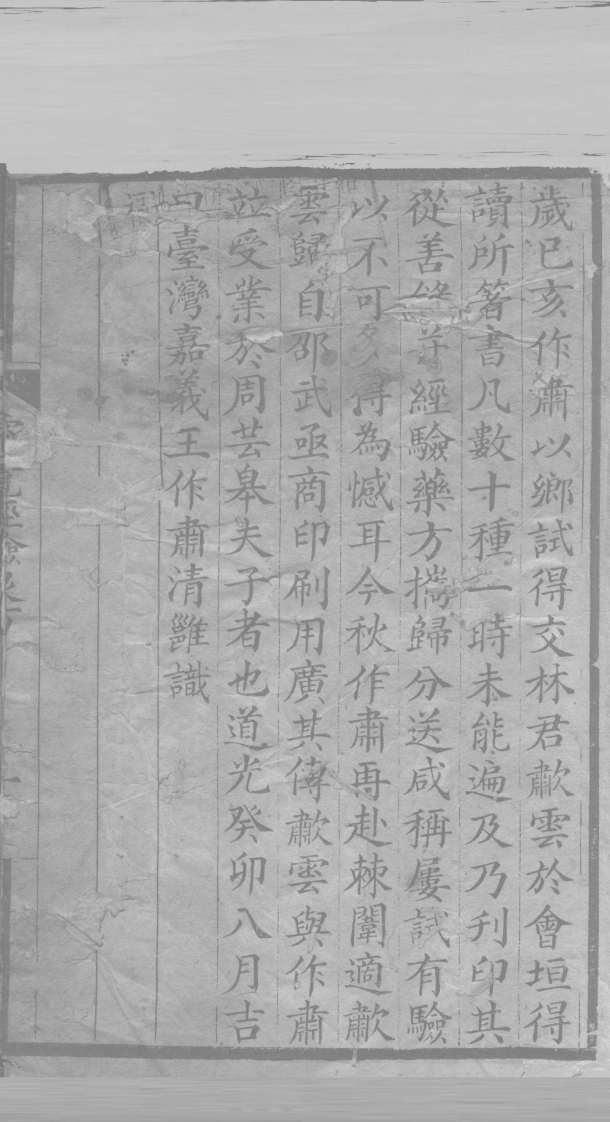 歲已亥作肅以鄉試得交林君歗雲於會垣得
讀所箸書凡數十種一時未能遍及乃刋印其
從善條并經驗藥方攜歸分送咸稱屢試有驗
以不可多得為憾耳今秋作肅再赴棘闈適歗
雲歸自邵武亟商印刷用廣其傳歗雲與作肅
竝受業於周芸皋夫子者也道光癸卯八月吉
臺灣嘉義王作肅清雝識